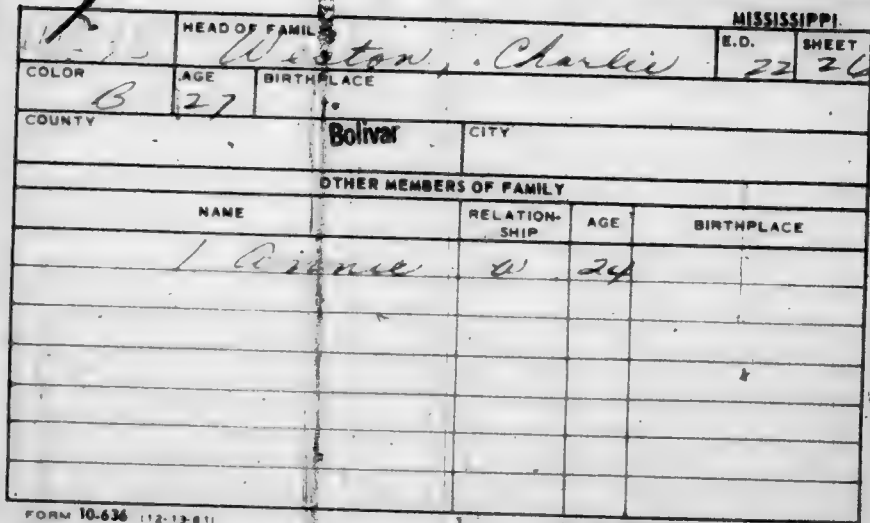 MISSISSIPPI.
HEAD OF FAMILY Weston, Charlie E.D. 22 SHEET 26
COLOR B AGE 27 BIRTHPLACE
COUNTY Bolivar CITY
OTHER MEMBERS OF FAMILY
NAME RELATION-SHIP AGE BIRTHPLACE
W 24
FORM 10-636 (12-13-61)